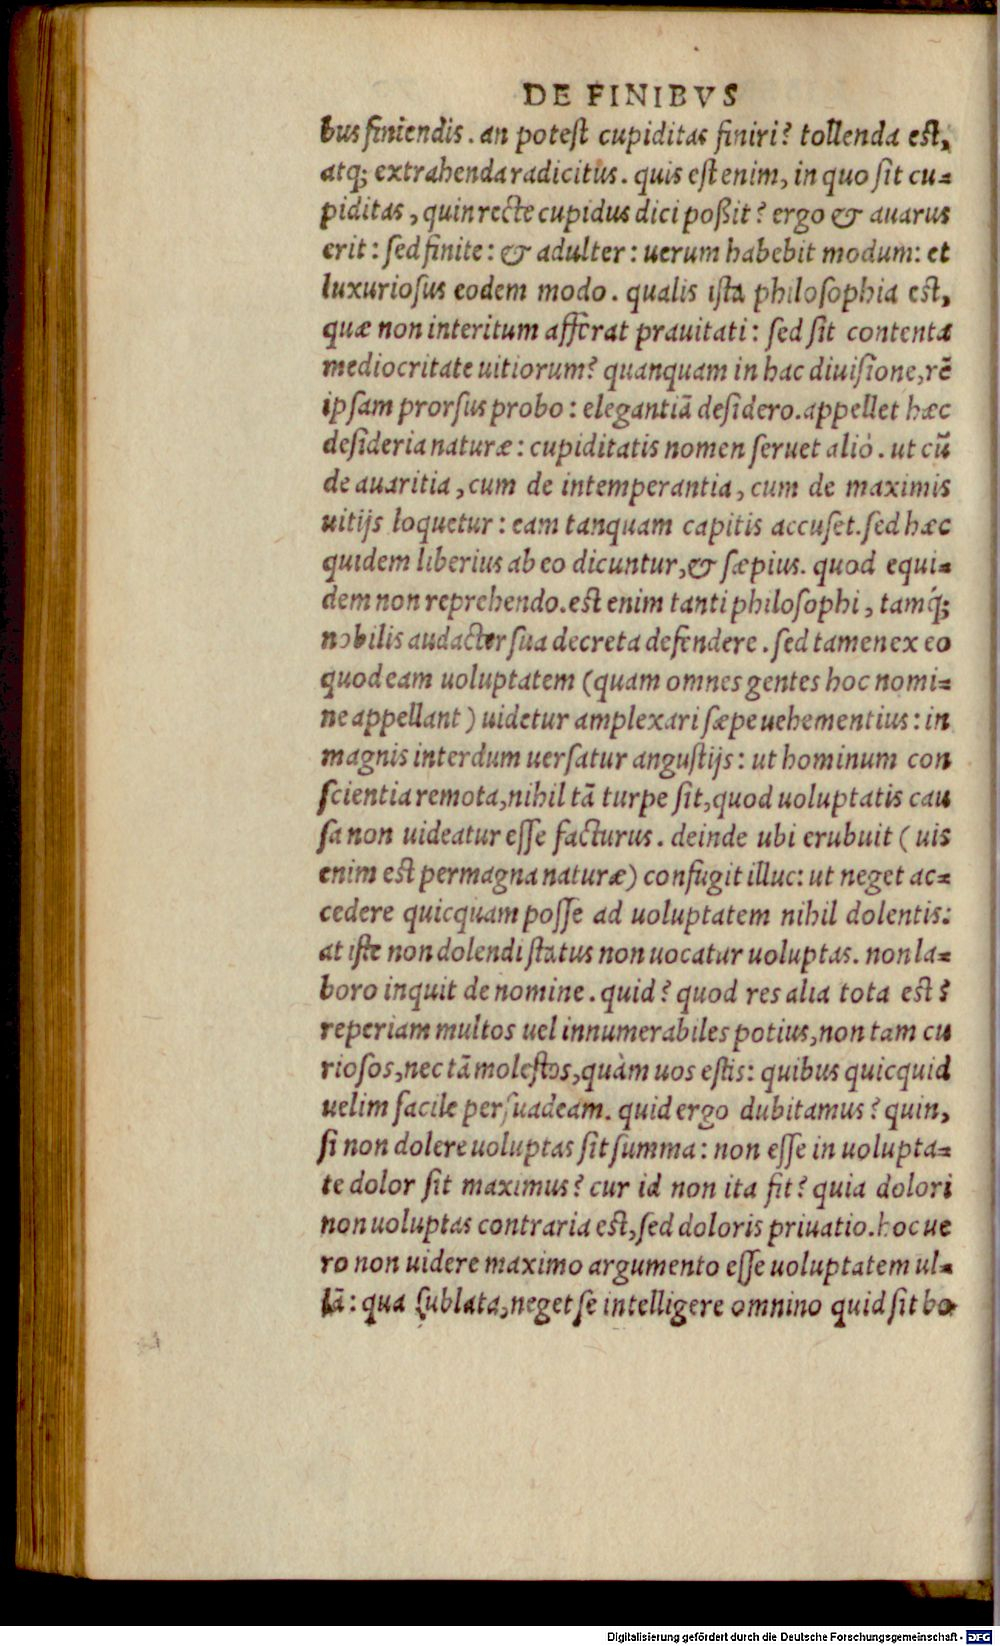 DE FINIBVS
bus finiendis. an potest cupiditas finiri? tollenda est,
atq; extrahenda radicitus. quis est enim, in quo sit cu-
piditas, quin recte cupidus dici poßit? ergo & auarus
erit: sed finite: & adulter: uerum habebit modum: et
luxuriosus eodem modo. qualis ista philosophia est,
quæ non interitum afferat prauitati: sed sit contenta
mediocritate uitiorum? quanquam in hac diuisione, rē
ipsam prorsus probo: elegantiā desidero. appellet hæc
desideria naturæ: cupiditatis nomen seruet alió. ut cū
de auaritia, cum de intemperantia, cum de maximis
uitijs loquetur: eam tanquam capitis accuset. sed hæc
quidem liberius ab eo dicuntur, & sæpius. quod equi-
dem non reprehendo. est enim tanti philosophi, tamq́;
nobilis audacter sua decreta defendere. sed tamen ex eo
quod eam uoluptatem (quam omnes gentes hoc nomi-
ne appellant) uidetur amplexari sæpe uehementius: in
magnis interdum uersatur angustijs: ut hominum con
scientia remota, nihil tā turpe sit, quod uoluptatis cau
sa non uideatur esse facturus. deinde ubi erubuit (uis
enim est permagna naturæ) confugit illuc: ut neget ac-
cedere quicquam posse ad uoluptatem nihil dolentis:
at iste non dolendi status non uocatur uoluptas. non la-
boro inquit de nomine. quid? quod res alia tota est?
reperiam multos uel innumerabiles potius, non tam cu
riosos, nec tā molestos, quàm uos estis: quibus quicquid
uelim facile persuadeam. quid ergo dubitamus? quin,
si non dolere uoluptas sit summa: non esse in uolupta-
te dolor sit maximus? cur id non ita fit? quia dolori
non uoluptas contraria est, sed doloris priuatio. hoc ue
ro non uidere maximo argumento esse uoluptatem ul-
lā: qua sublata, neget se intelligere omnino quid sit bo-
Digitalisierung gefördert durch die Deutsche Forschungsgemeinschaft - DFG